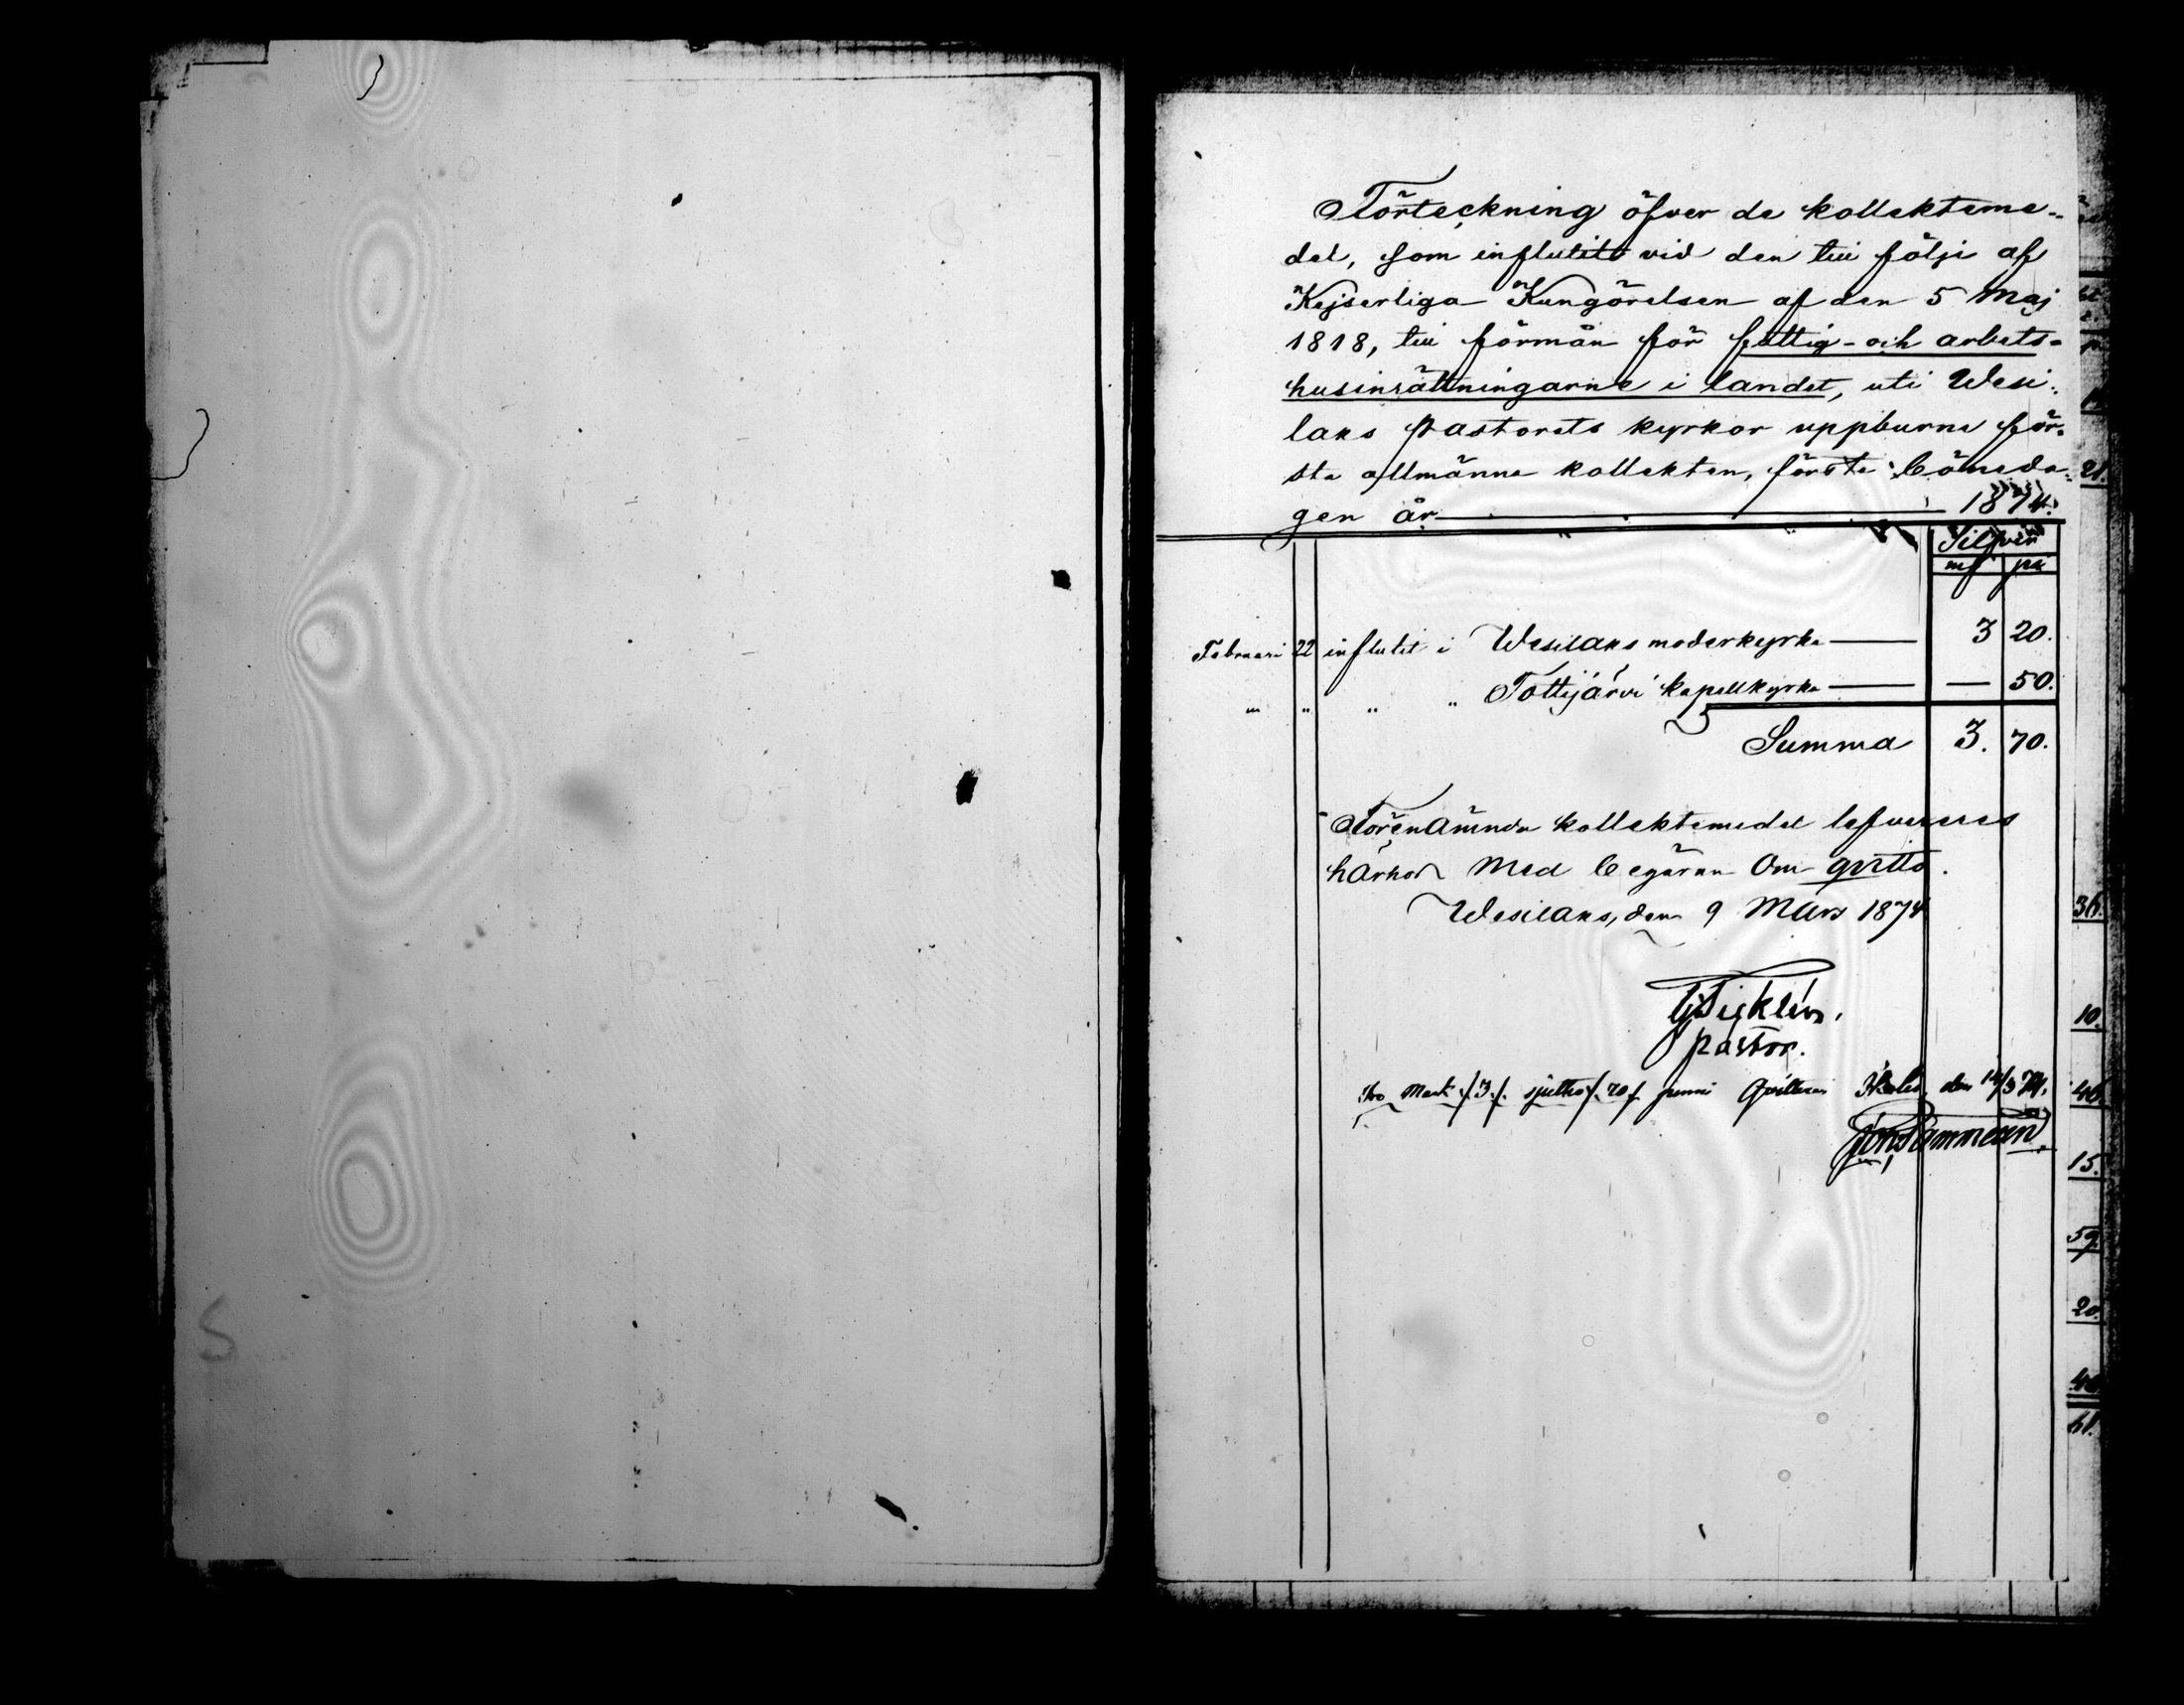 Förteckning öfver de kollekteme-
del, som influtit vid den till följe af
Kejserliga Kungörelsen af den 5 Maj
1818, till förmån för fattig- och arbets-
husinrättningarne i landet, uti Wesi-
laks Pastorats kyrkor uppburne för-
sta allmänna kollekten, första böneda-
gen år 1874.
Silfver
mf pi
Februari 22 influtit i Wesilaks moderkyrka — 3 20.
" " " " Tottijärvi kapellkyrka — — 50.
Summa 3. 70.
Förenämnda kollektemedel lefvereras
härhos med begäran om qvitto.
Wesilaks, den 9 Mars 1874
pastor.
Mark /.3./. sjuttio /.70./. penni qvitteras den 14/3 74.
21.
36.
10.
46.
15.
59.
20.
40.
61.